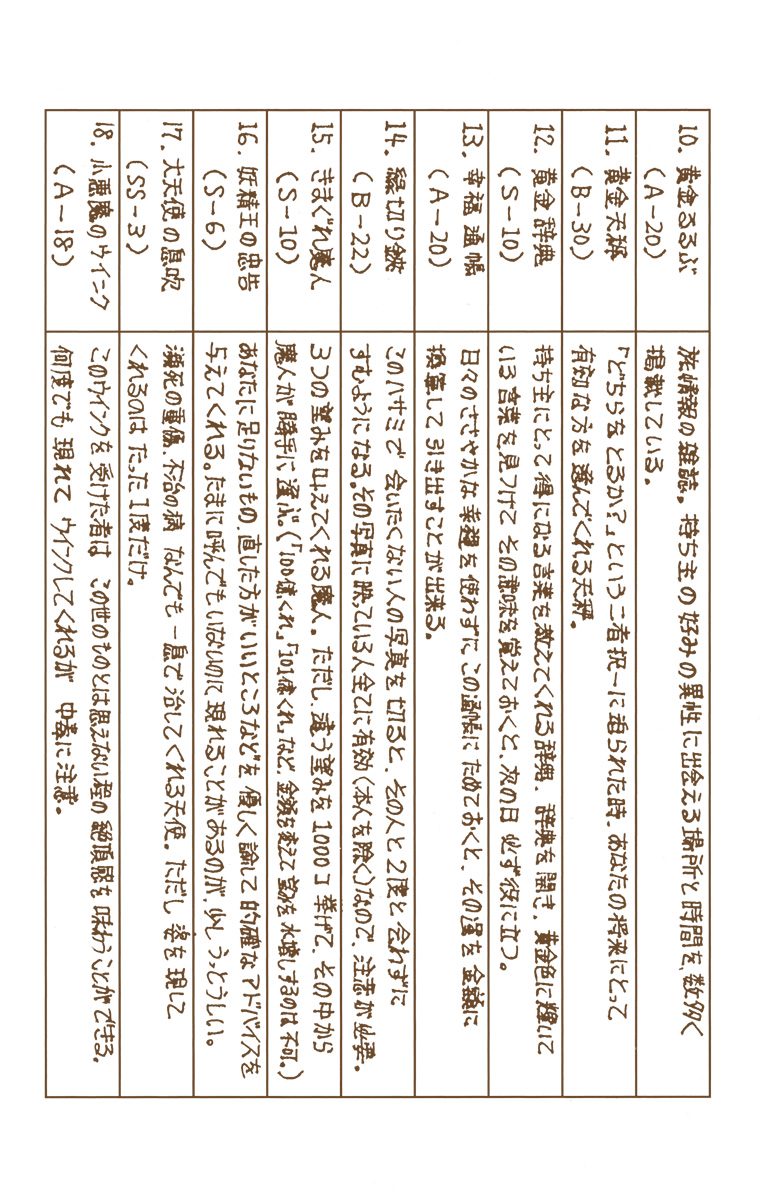 10. 黄金るるぶ
(A-20)
旅情報の雑誌。持ち主の好みの異性に出会える場所と時間を、数多く
掲載している。
11. 黄金天秤
(B-30)
「どちらをとるか?」という二者択一に迫られた時、あなたの将来にとって
有効な方を選んでくれる天秤。
12. 黄金辞典
(S-10)
持ち主にとって得になる言葉を教えてくれる辞典。辞典を開き、黄金色に輝いて
いる言葉を見つけて その意味を覚えておくと、次の日 必ず役に立つ。
13. 幸福通帳
(A-20)
日々のささやかな幸福を使わずに この通帳に ためておくと、その運を金額に
換算して 引き出すことが出来る。
14. 縁切り鋏
(B-22)
このハサミで 会いたくない人の写真を切ると、その人と2度と会わずに
すむようになる。その写真に映っている人全てに有効(本人を除く)なので、注意が必要。
15. きまぐれ魔人
(S-10)
3つの望みを叶えてくれる魔人。ただし、違う望みを1000コ挙げて、その中から
魔人が勝手に選ぶ。(「100億くれ」「101億くれ」など、金額を変えて望みを水増しするのは不可。)
16. 妖精王の忠告
(S-6)
あなたに足りないもの、直した方がいいところなどを 優しく諭して 的確なアドバイスを
与えてくれる。たまに呼んでもいないのに 現れることがあるのが、少しうっとうしい。
17. 大天使の息吹
(SS-3)
瀕死の重傷、不治の病 なんでも一息で治してくれる天使。ただし 姿を現して
くれるのは たった1度だけ。
18. 小悪魔のウインク
(A-18)
このウインクを受けた者は この世のものとは思えない程の 絶頂感を味わうことができる。
何度でも 現れて ウインクしてくれるが 中毒に注意。